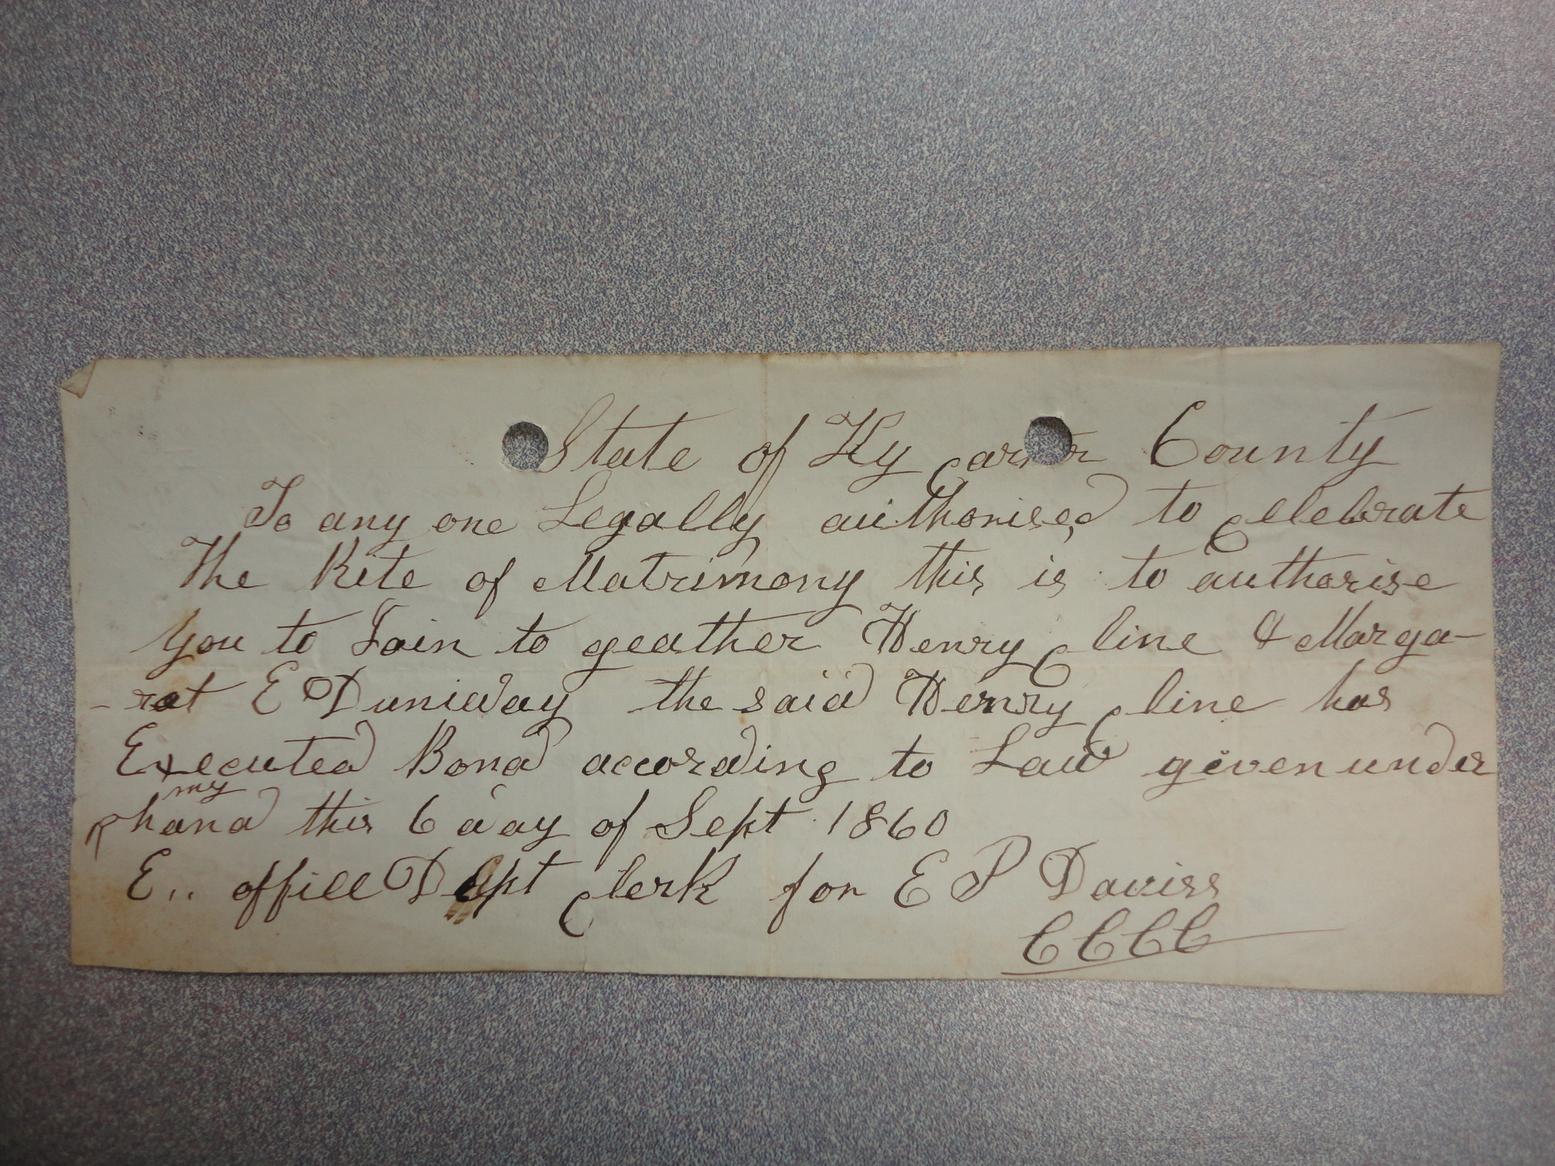 State of Ky Carter County
To any one Legally authorised to Celebrate
The Rite of Matrimony this is to authorise
you to Join to geather Henry Cline & Marga-
-ret E Duniway the said Henry Cline has
Executed Bond according to Law given under
my
hand this 6 day of Sept 1860
E.. offill Dept Clerk for E P Daviss
CCCC